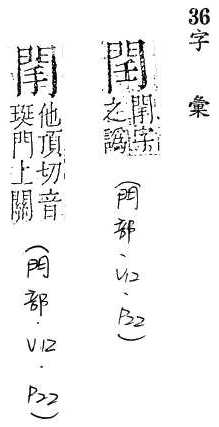 36 字彙
字
之譌
(門部.V12.P22)
他頂切音
珽門上關
(門部.V12.P22)